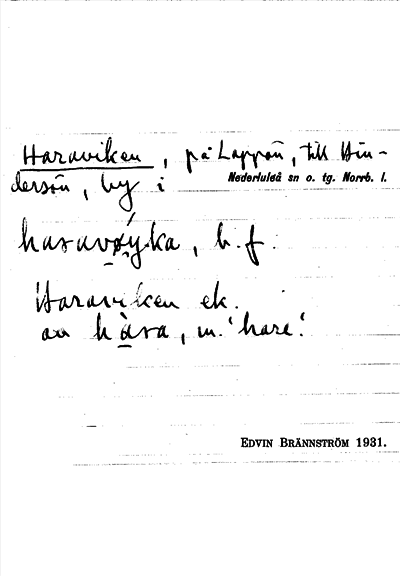 Haraviken, på Lappön, till Hin-
dersön, by i Nederluleå sn o. tg. Norrb. l.
haravøýka, b. f.
Haraviken ek.
av hàra, m. 'hare'.
EDVIN BRÄNNSTRÖM 1931.